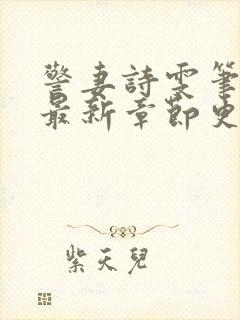 警妻詩雯筆
最新章節史
紫天兒